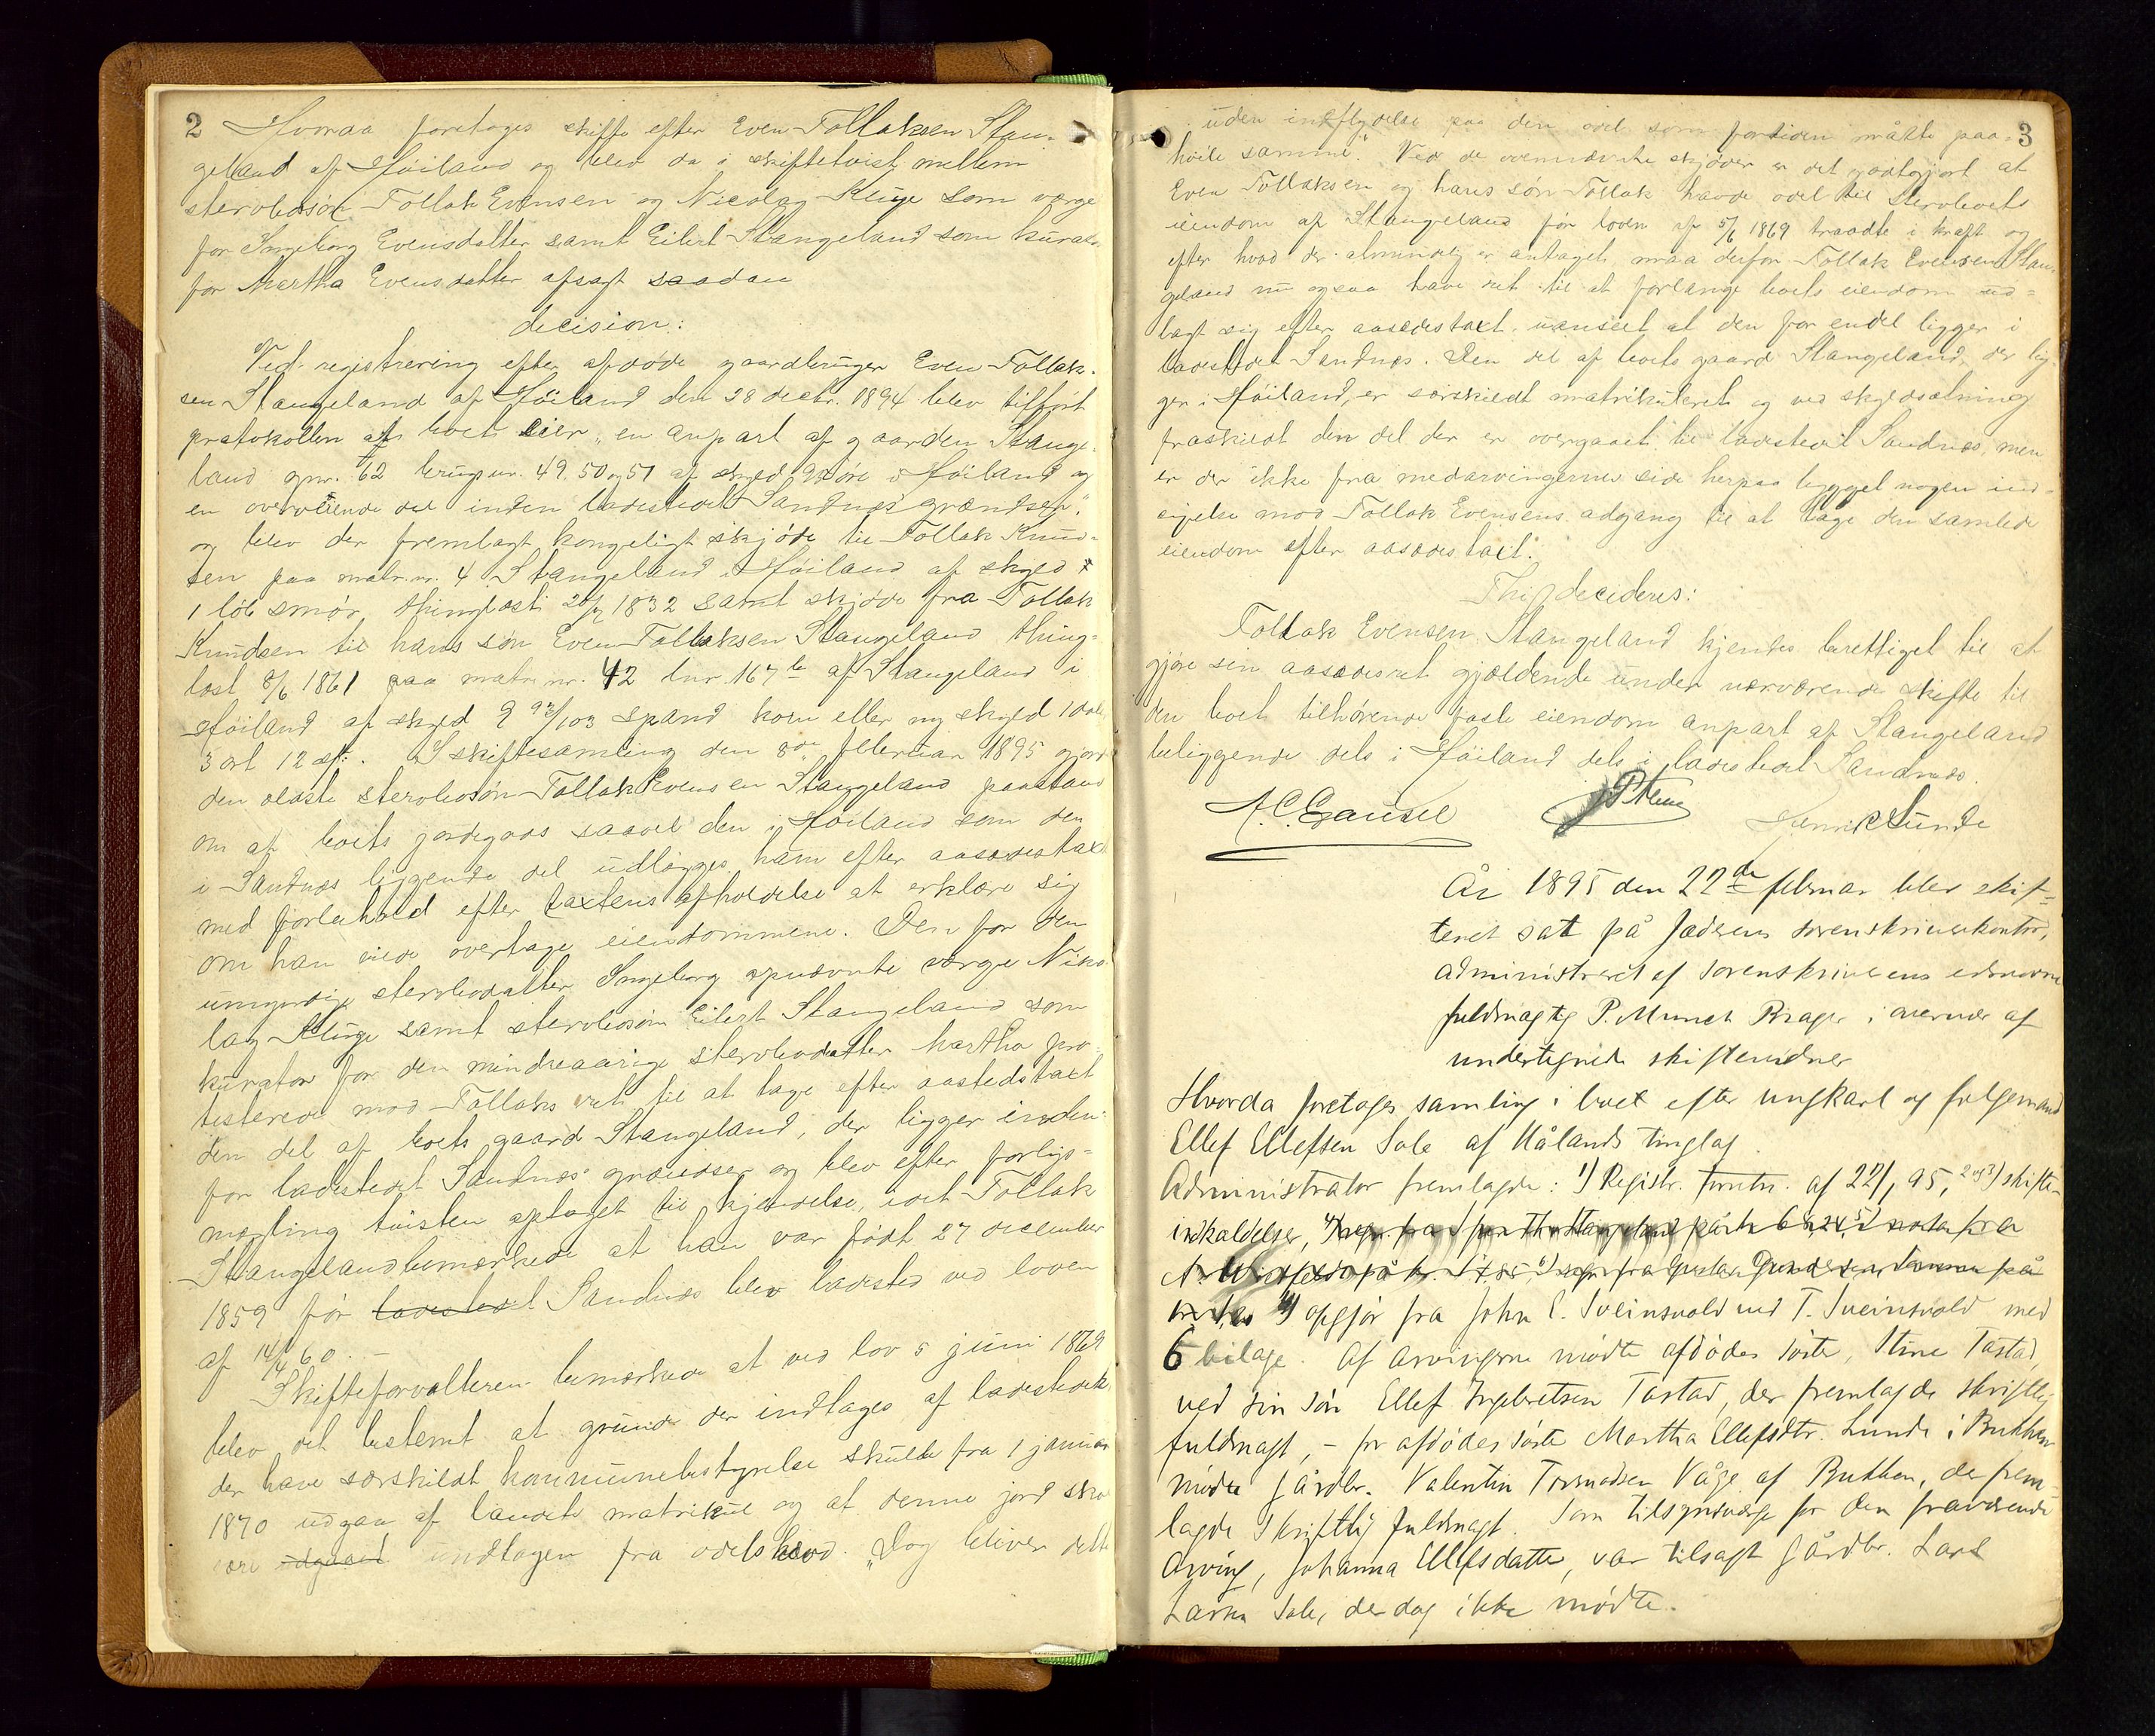 2
Hvorda foretoges skifte efter Even Tollaksen Stan-
geland af Høiland og blev da i skiftetvist mellem
stervbosøn Tollak Evensen og Nicolay Kluge som verge
for Ingeborg Evensdatter samt Eilert Stangeland som kurator
for Martha Evensdatter afsagt saadan
decision:
Ved registrering efter afdøde gaardbruger Even Tollak-
sen Stangeland af Høiland den 28 decbr. 1894 blev tilført
protokollen at boet eier „en anpart af gaarden Stange-
land gnr. 62 brugnr. 49, 50 og 51 af skyld øre i Høiland og
en overveiende del inden ladestedet Sandnes grændser.“
og blev der fremlagt kongeligt skjøde til Tollak Knud-
sen paa matr. nr. 4 Stangeland i Høiland af skyld
1 løb smør, thinglæst 1832 samt skjøde fra Tollak
Knudsen til hans søn Even Tollaksen Stangeland thing-
læst 8/6 1861 paa matr. nr. 42 lnr. 167 b af Stangeland i
Høiland af skyld 9 93/103 spand korn eller ny skyld 1 daler
3 ort 12 sk. I skiftesamling den 8de februar 1895 gjorde
den ældste stervbosøn Tollak Evensen Stangeland paastand
om at boets jordegods saavel den i Høiland som den
i Sandnes liggende del udlægges ham efter aasædestaxt
med forbehold efter taxtens afholdelse at erklære sig
om han vilde overtage eiendommene. Den for den
umyndige stervbodatter Ingeborg opnævnte værge Niko-
lay Kluge samt stervbosøn Eilert Stangeland som
kurator for den mindreaarige stervbodatter Martha pro-
testerede mod Tollaks ret til at tage efter aastedstaxt
den del af boets gaard Stangeland, der ligger inden-
for ladestedet Sandnes grændser og blev efter forligs-
mægling tvisten optaget til kjendelse, idet Tollak
Stangeland bemærkede at han var født 27 december
1859 før ladestedet Sandnes blev ladested ved loven
af 14/4 60. –
Skifteforvalteren bemærkede at ved lov 5 juni 1869
blev det bestemt at grunde der indtages af ladesteder
der have særskildt kommunebestyrelse skulde fra 1 januar
1870 udgaa af landets matrikul og at denne jord skal
være udgaaet undtagen fra odelskud. „Dog bliver dette
3
uden indflydelse paa den odel som forsiden måtte paa-
hvile samme“. Ved de ovennævnte skjøder er det godtgjort at
Even Tollaksen og hans søn Tollak havde odel til stervboets
eiendom af Stangeland før loven af 5/6 1869 traadte i kraft og
efter hvad der almindelig er antaget, maa derfor Tollak Evensen Stan-
geland nu ogsaa have ret til at forlange boets eiendom ud-
lagt sig efter aasædestaxt uanseet at den for endel ligger i
ladestedet Sandnes. Den del af boets gaard Stangeland, der lig-
ger i Høiland, er særskildt matrikuleret og ved skyldsætning
fraskildt den del der er overgaaet til ladestedet Sandnes, men
er der ikke fra medarvingernes side herpaa bygget nogen ind-
sigelse mod Tollak Evensens adgang til at tage den samlede
eiendom efter aasædestaxt.
Thi decideres:
Tollak Evensen Stangeland kjendes berettiget til at
gjøre sin aasædesret gjældende under nærværende skifte til
den boet tilhørende faste eiendom anpart af Stangeland
beliggende dels i Høiland dels i ladestedet Sandnes.
A. C. Gausel Henrik Lunde
År 1895 den 22de februar blev skif-
teret sat på Jæderens sorenskriverkontor,
administreret af sorenskriverens edsvorne
fuldmægtig P. Munch Brager i nærvær af
undertegnede skiftevidner
Hvorda foretoges samling i boet efter ungkarl og følgemand
Ellef Ellefsen Sole af Hålands tinglag.
Administrator fremlagde: 1) Registr. forretn. af 22/1 95, 2 og 3) skifte-
indkaldelser,
4) opgjør fra John E. Sveinsvold ved T. Sveinsvold med
6 bilage. Af arvingerne mødte afdødes søster, Stine Tastad,
ved sin søn Ellef Ingebretsen Tastad, der fremlagde skriftlig
fuldmagt, – for afdødes søster Martha Ellefsdtr. Lunde i Bukken
mødte gårdbr. Valentin Tormodsen Våge af Bukken, der frem-
lagde skriftlig fuldmagt. Som tilsynsværge for den fraværende
arving, Johanna Ellefsdatter, var tilsagt gårdbr. Lars
Larsen Sole, der dog ikke mødte.